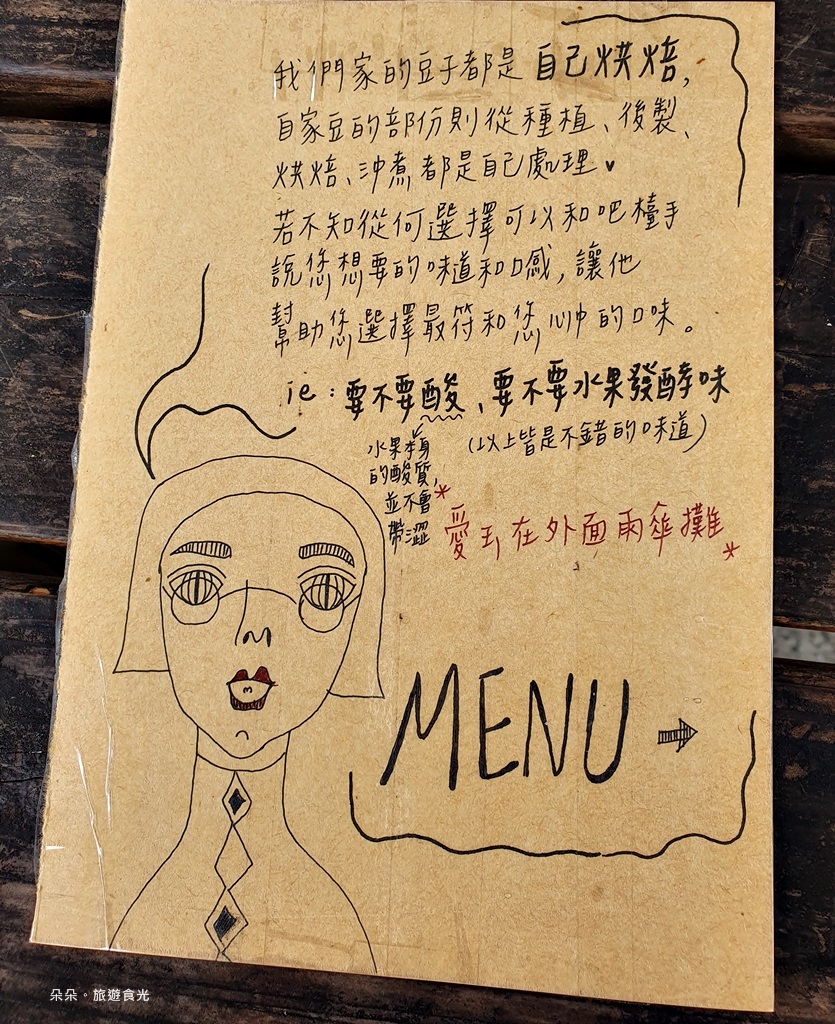 我們家的豆子都是自己烘焙,
自家豆的部份則從種植、後製、
烘焙、沖煮都是自己處理♥
若不知從何選擇可以和吧檯手
說您想要的味道和口感,讓他
幫助您選擇最符和您心中的口味。
ie:要不要酸、要不要水果發酵味
(以上皆是不錯的味道)
水果本身
的酸質,
並不會
帶澀
*愛玉在外面雨傘攤*
MENU →
朵朵。旅遊食光